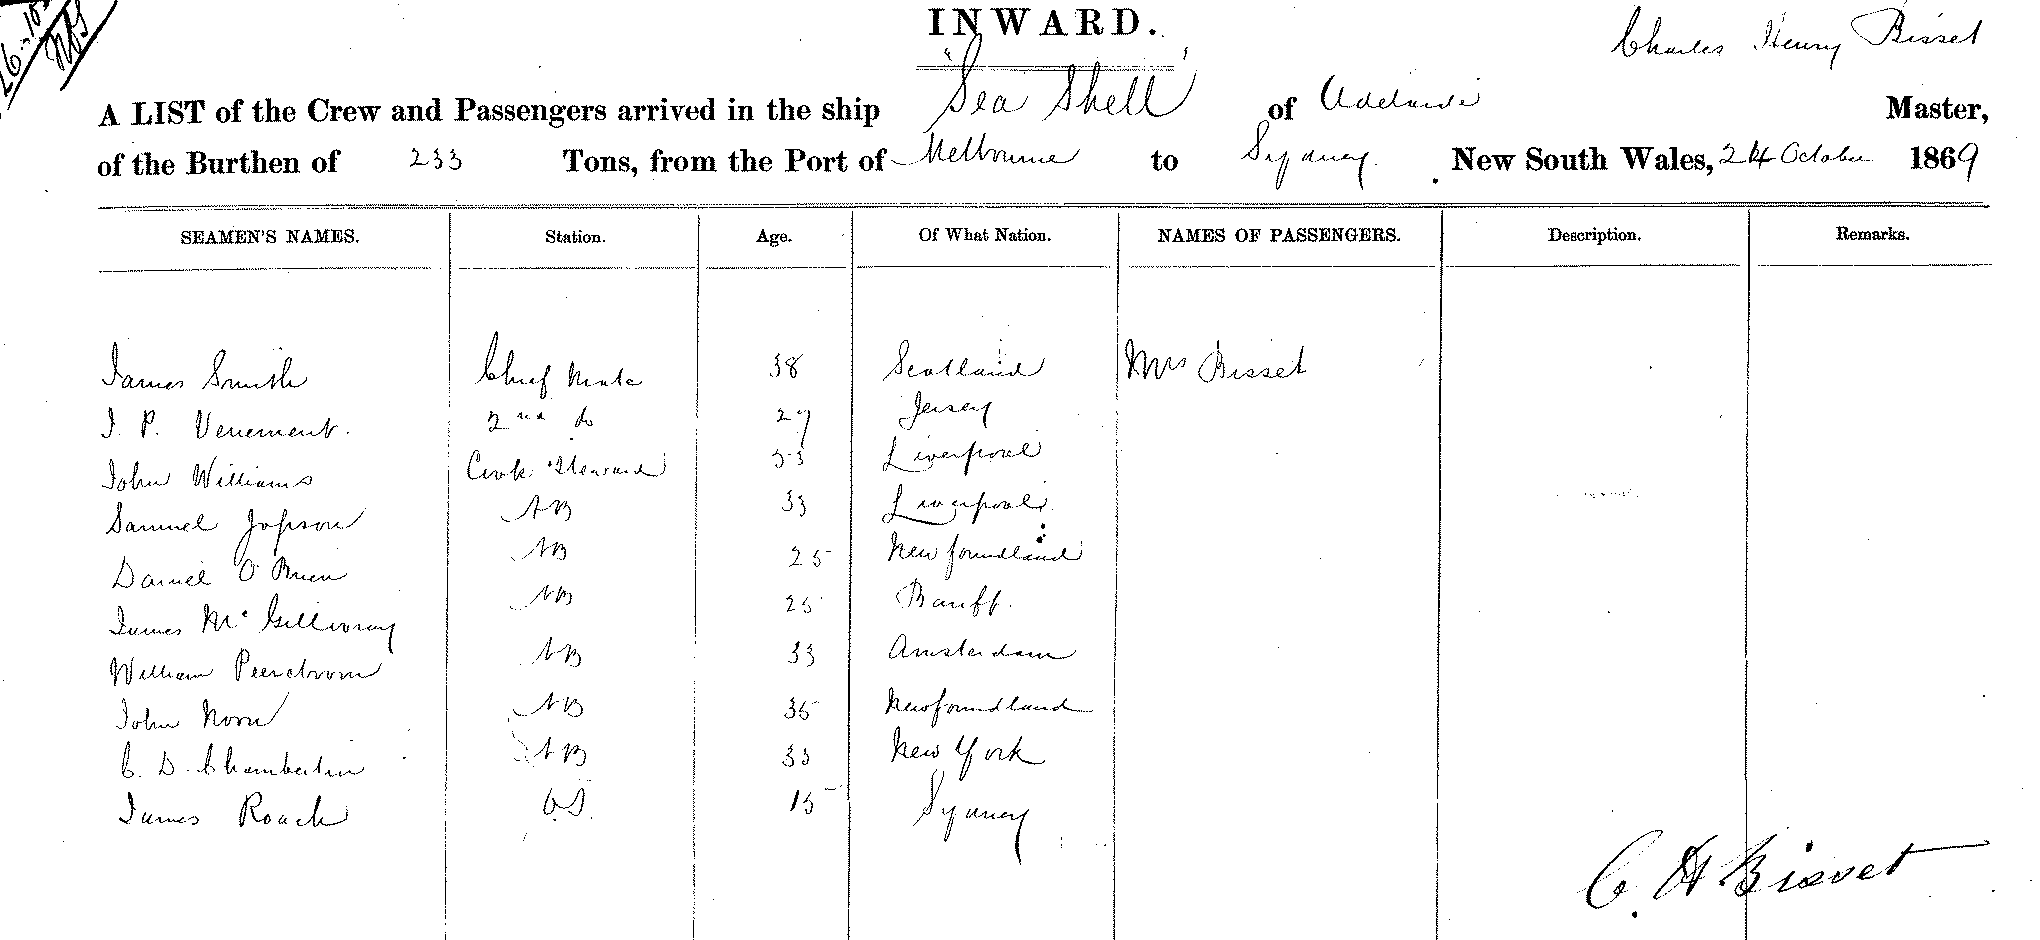 INWARD.
Charles Henry Bisset
A LIST of the Crew and Passengers arrived in the ship "Sea Shell" of Adelaide Master,
of the Burthen of 233 Tons, from the Port of Melbourne to Sydney. New South Wales, 24 October 1869
SEAMEN'S NAMES. Station. Age. Of What Nation. NAMES OF PASSENGERS. Description. Remarks.
James Smith Chief Mate 38 Scotland Mrs Bisset
J. P. Venement. 2nd do Jersey
John Williams Cook Steward 33 Liverpool
Samuel Jopson AB 33 Liverpool
Daniel O'Brien AB 25 Newfoundland
James Mc Gillivray AB 25 Banff.
William Peerebroom AB 33 Amsterdam
John Norn AB 35 Newfoundland
C. D. Chamberlin AB 33 New York
James Roach O.S. 15 Sydney
C. H Bisset